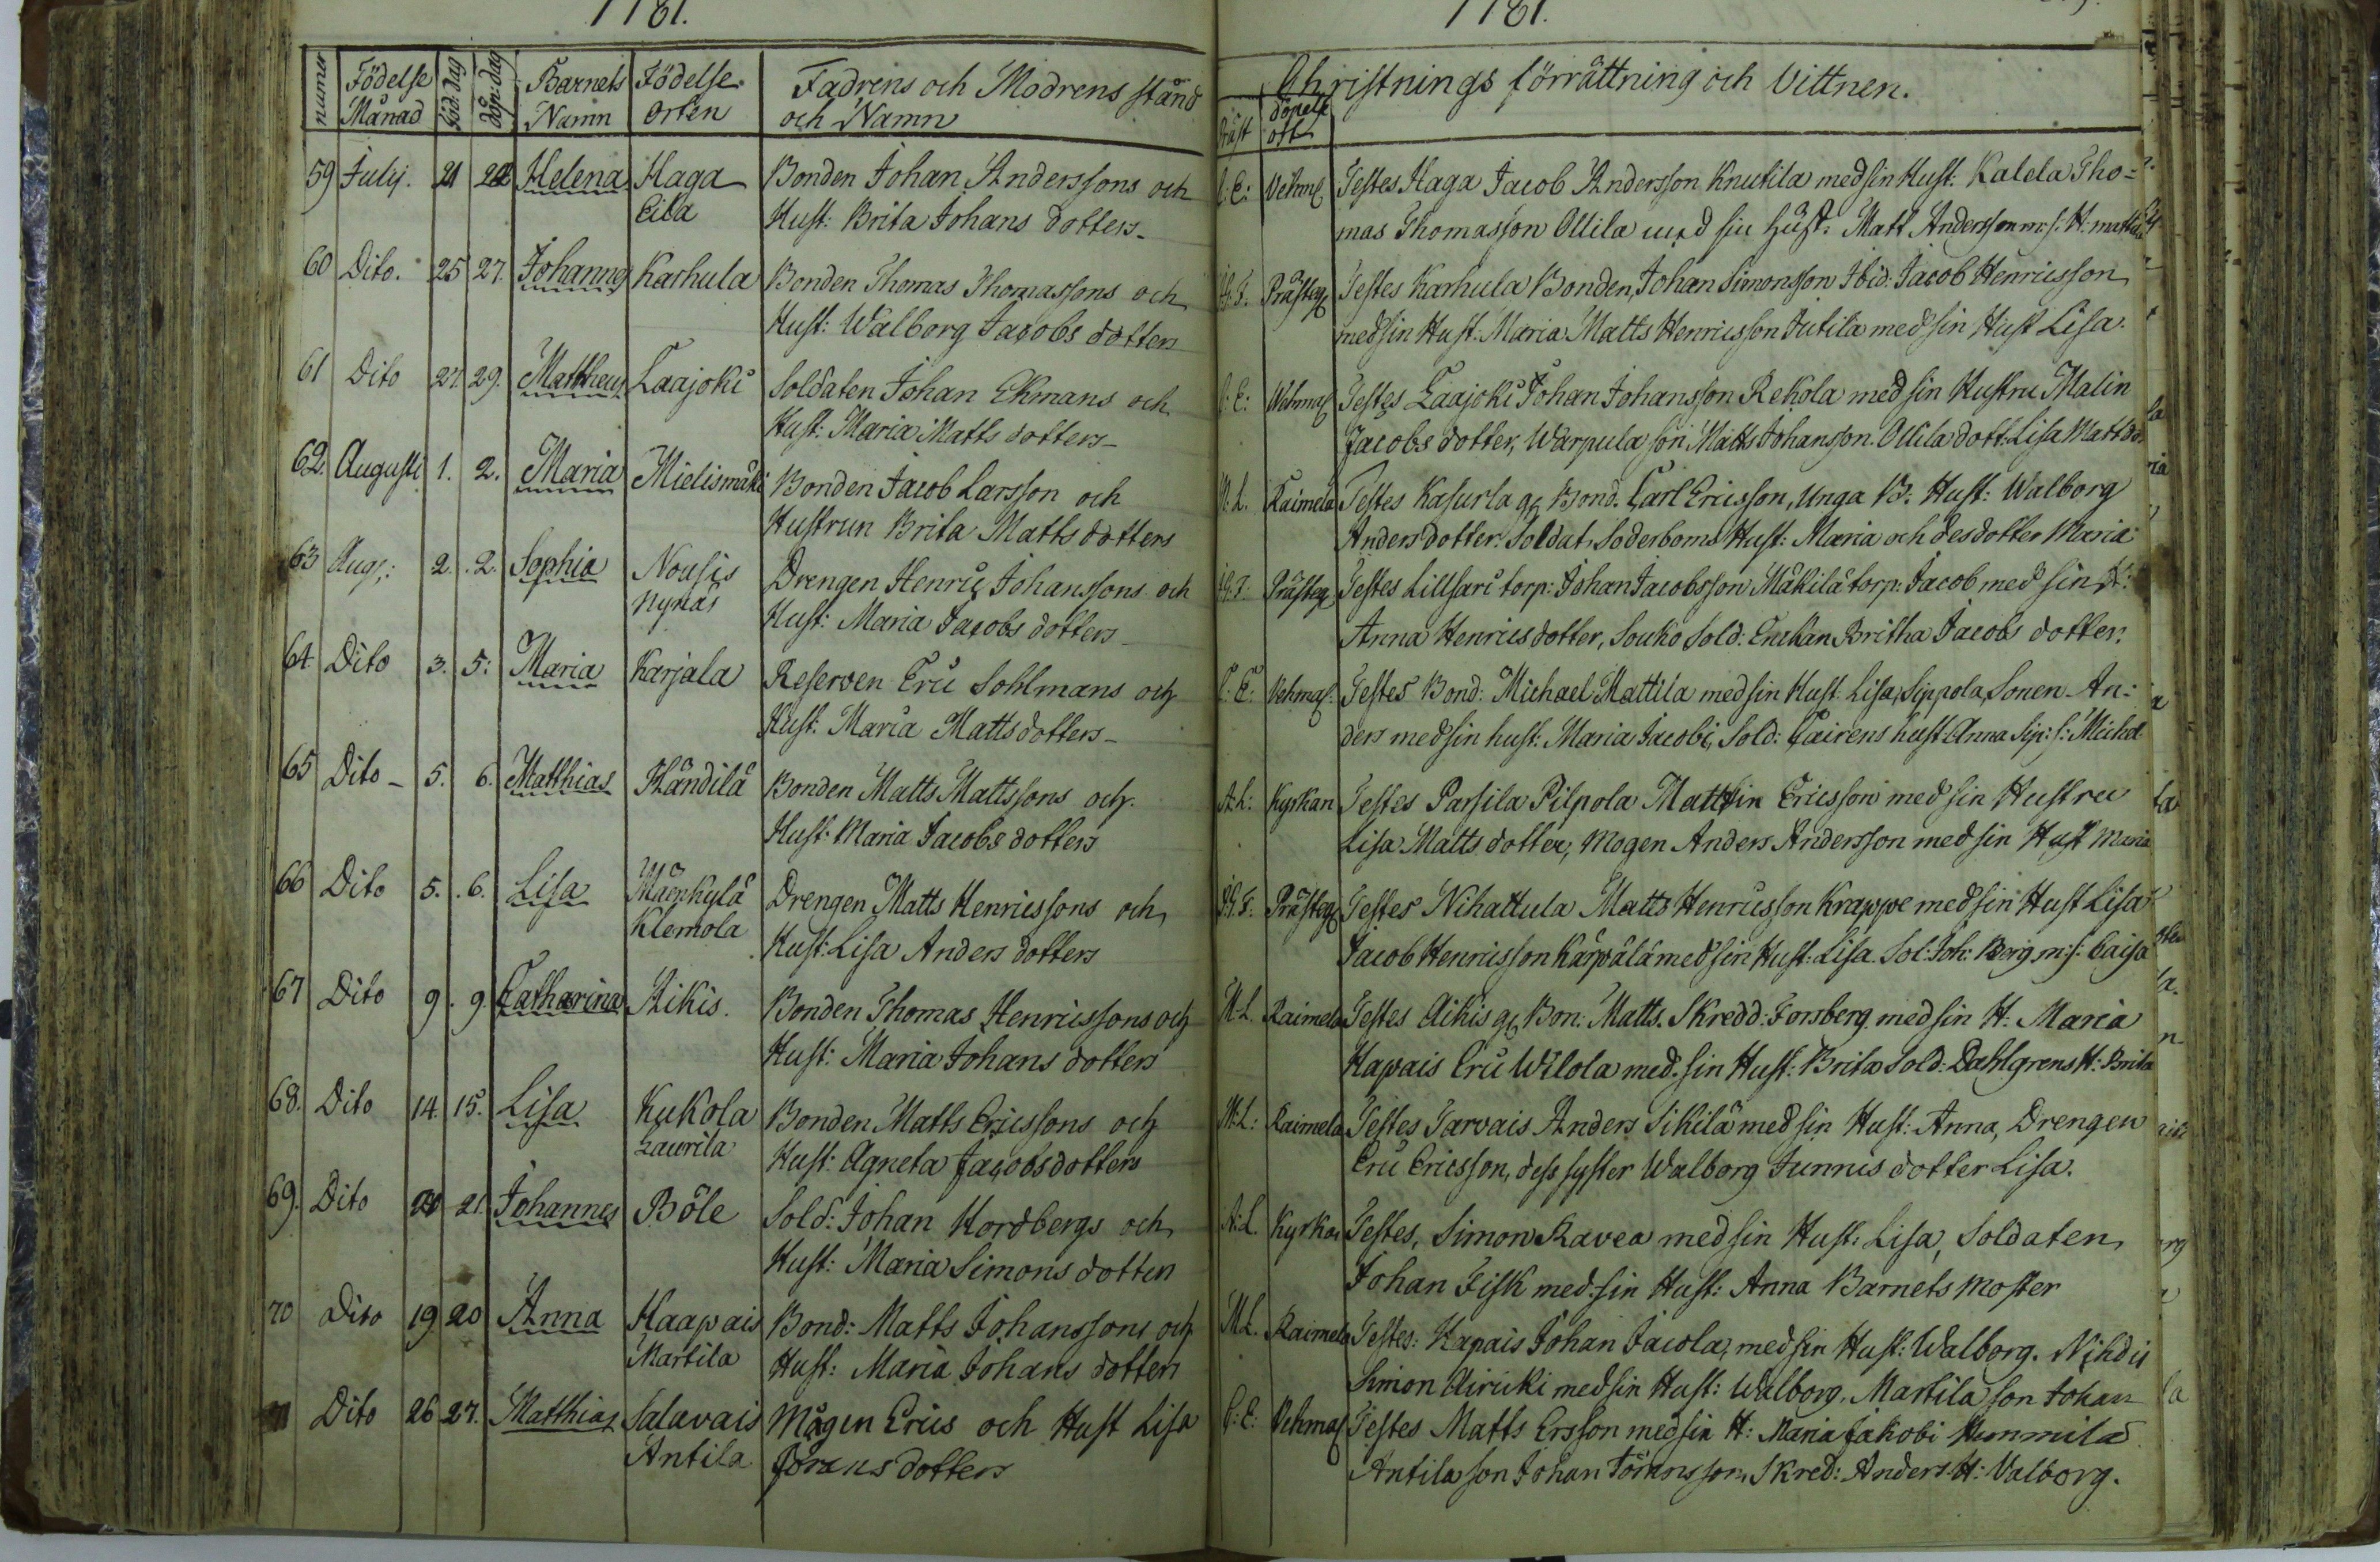 1781.
numer Födelse Månad föd: dag döp: dag Barnets Namn Födelse orten Fadrens och Modrens stånd och Namn
59 Julij. 21 22 Helena Haga Bonden Johan Anderssons och
Eila Hust: Brita Johans dotters
60 Dito. 25 27. Johannes Karhula Bonden Thomas Thomassons och
Hust: Walborg Jacobs dotters
61 Dito 27. 29. Mattheus Laajoki Soldaten Johan Ekmans och
Hust: Maria Matts dotters
62. Augusti 1. 2. Maria Mielismäki Bonden Jacob Larsson och
Hustrun Brita Matts dotters
63 Aug: 2. 2. Sophia Nousis Drengen Henric Johanssons och
Nynäs Hust: Maria Jacobs dotters
64 Dito 3. 5: Maria Karjala Reserven Eric Sohlmans och
Hust: Maria Matts dotters
65 Dito 5. 6. Matthias Kändilä Bonden Matts Mattssons och
Hust: Maria Jacobs dotters
66 Dito 5. 6. Lisa Mäenkylä Drengen Matts Henricssons och
Klemola Hust: Lisa Anders dotters
67 Dito 9. 9. Catharina Aikis. Bonden Thomas Henricssons och
Hust: Maria Johans dotters
68. Dito 14 15. Lisa Kukola Bonden Matts Ericssons och
Laurila Hust: Agneta Jacobsdotters
69. Dito 20 21. Johannes Böle Sold: Johan Nordbergs och
Hust: Maria Simons dotters
70 Dito 19 20 Anna Haapais Bond: Matts Johanssons och
Martila Hust: Maria Johans dotters
71 Dito 26 27. Matthias Salavais Mågen Erics och Hust Lisa
Antila Görans dotters
1781.
Christnings förrättning och Vittnen.
Präst döpelse ort
C: E: Vehm Testes Haga Jacob Andersson Knutila med sin Hust: Kalela Tho=
mas Thomasson Ollila med sin Hust: Matt Andersson m: s: H:
Präste Testes Karhula Bonden, Johan Simonsson Ibid: Jacob Henricsson
med sin Hust: Maria Matts Henricsson Jutila med sin Hust Lisa.
C: E: Wehmas Testes Laajoki Johan Johansson Rekola med sin Hustru Malin
Jacobs dotter, Warpula son Matts Johansson. Ollila dott: Lisa Matt do
M: L. Kaimela Testes Kasurla Bond. Carl Ericsson, Unga B: Hust: Walborg
Anders dotter. Soldat. Söderboms Hust: Maria och des dotter Maria
Präste Testes Lillsari torp: Johan Jacobsson Mäkilä torp: Jacob med sin H:
Anna Henrics dotter, Souko Sold: Enckan Britha Jacobs dotter.
C: E: Vehmas: Testes Bond: Michael Mattila med sin Hust: Lisa, Sippola, Sonen An=
ders med sin hust: Maria Jacobi, Sold: Cairens hust Anna Sip: s: Michel
A: L: Kyrkan Testes Parsila Pilpola Matts Ericsson med sin Hustru
Lisa Matts dotter, Mogen Anders Andersson med sin Hust Maria
Präste Testes Nihattula Matts Henricsson Krappe med sin Hust Lisa
Jacob Henricsson Kärpälä med sin Hust: Lisa. Sol: Joh: Berg m: s: Caisa
M: L. Kaimela Testes Aikis Bon: Matts. Skredd: Forsberg med sin H: Maria
Hapais Eric Wilola med sin Hust: Brita Sold: Dahlgrens H: Brita
M: L: Kaimela Testes Tarvais Anders Sikilä med sin Hust: Anna, Drengen
Eric Ericsson, dess syster Walborg Junnis dotter Lisa.
A: L. Kyrkan Testes, Simon Ravea med sin Hust: Lisa, Soldaten
Johan Fisk med sin Hust: Anna Barnets Moster
M: L. Kaimela Testes: Hapais Johan Jacola, med sin Hust: Walborg.
Simon Airicki med sin Hust: Walborg. Martila son Johan
C: E: Vehmas Testes Matts Ersson med sin H: Maria Jakobi Hemmilä
Antila son Johan Göransson, Skred: Anders H: Valborg.